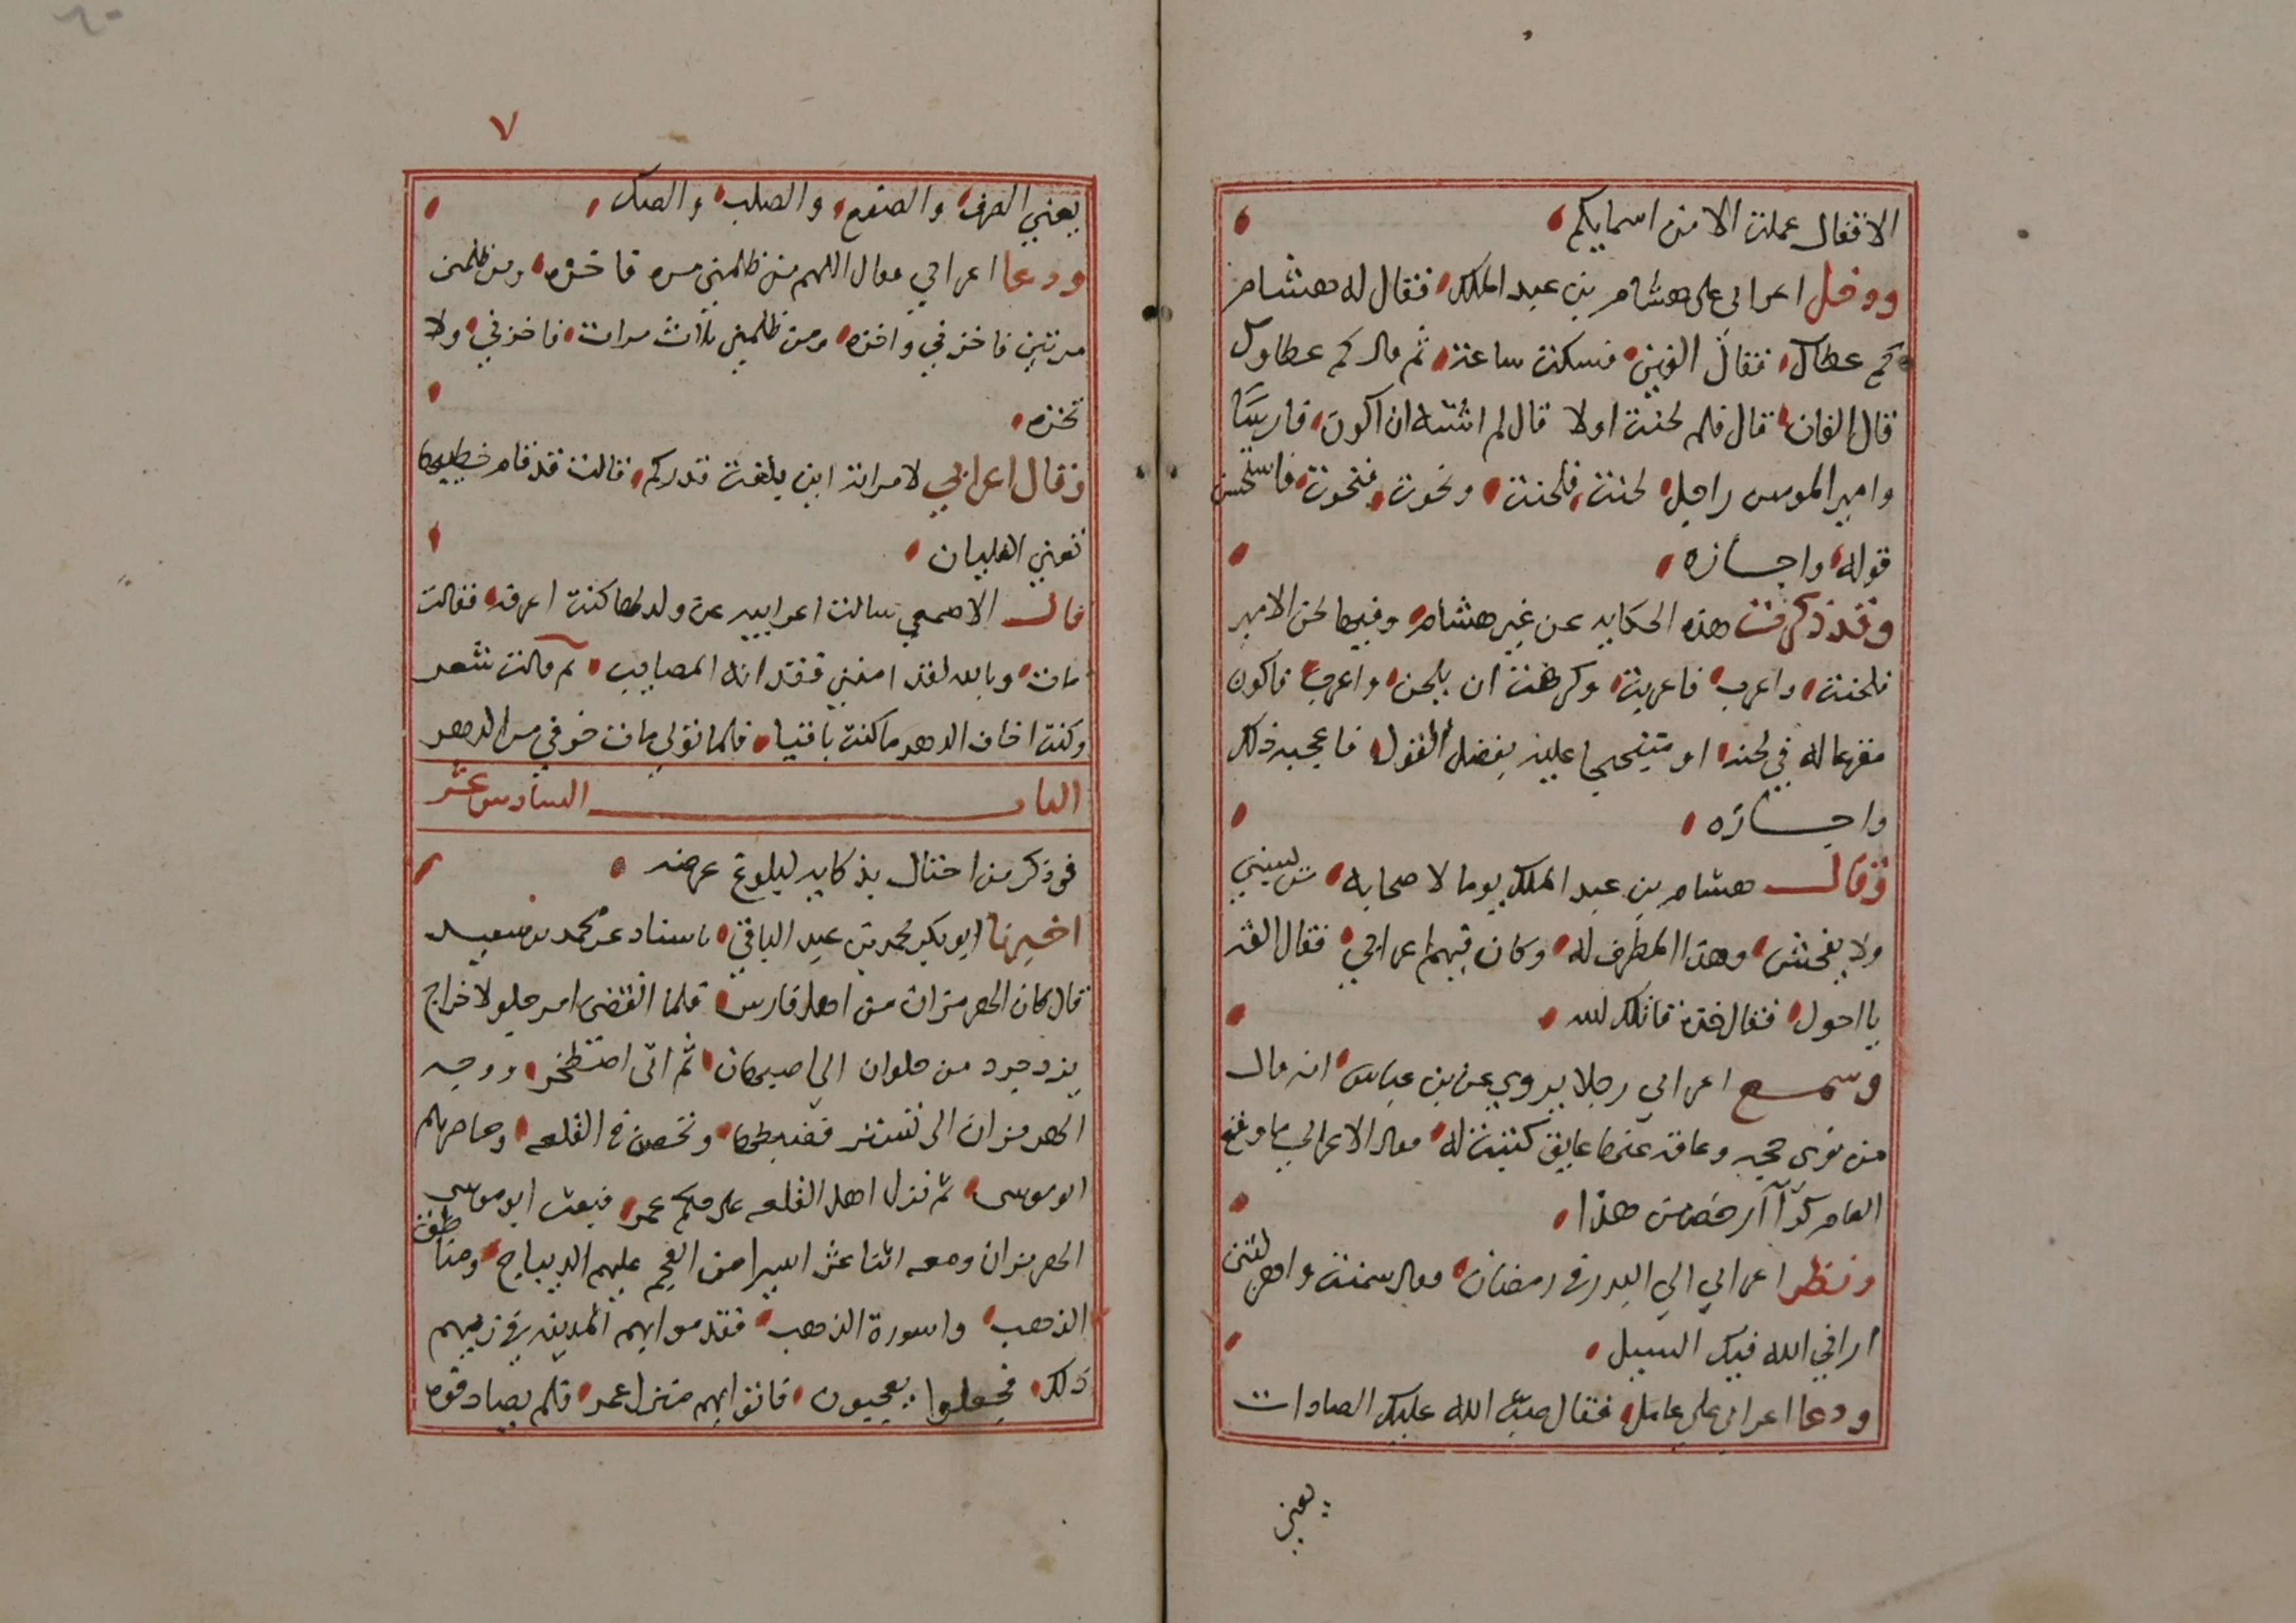 الاقفال عملت الا من اسمايكم
ودخل اعرابي على هشام بن عبد الملك فقال له هشام
كم عطاك فقال الفين فسكت ساعة ثم قال كم عطاوك
قال الفان قال فلم لحنت اولا قال لم اشته ان اكون فارسا
وامير المومنين راجل لحنت فلحنت ونحوت فنحوت فاستحسن
قوله واجازه
وقد ذكرت هذه الحكايه عن غير هشام وفيها لحن الامير
فلحنت واعرب فاعربت وكرهت ان يلحن واعرب فاكون
مقرعا له في لحنه او متبجحا عليه بفضل القول فاعجبه ذلك
واجازه
وقال هشام بن عبد الملك يوما لاصحابه من يسبني
ولا يفحش وهذا المطرف له وكان فيهم اعرابي فقال القه
يا احول فقال خذه قاتلك الله
وسمع اعرابي رجلا يروي عن بن عباس انه قال
من نوى حجه وعاقه عنها عايق كتبت له فقال الاعرابي ما وقع
العام كرا ارخص من هذا
ونظر اعرابي الى البدر في رمضان فقال سمنت واهزلتني
اراني الله فيك السبيل
ودعا اعرابي على عامل فقال صب الله عليك الصادات
يعني
٧
يعني الصرف والصفع والصلب والصك
ودعا اعرابي فقال اللهم من ظلمني مره فاخزه ومن ظلمني
مرتين فاخزني واخزه ومن ظلمني ثلاث مرات فاخزني ولا
تخزه
وقال اعرابي لامراته اين بلغت قدركم فقالت قد قام خطيبها
تعني الغليان
قال الاصمعي سالت اعرابيه عن ولد لها كنت اعرفه فقالت
مات وبالله لقد امنني فقدانه المصايب ثم قالت شعر
وكنت اخاف الدهر ما كنت باقيا فلما تولى مات خوفي من الدهر
الباب السادس عشر
في ذكر من احتال بذكايه لبلوغ غرضه
اخبرنا ابو بكر محمد بن عبد الباقي باسناد عن محمد بن سعيد
قال كان الهرمزان من اهل فارس فلما انقضى امر جلولا خرج
يزدجرد من حلوان الى اصبهان ثم اتى اصطخر ووجه
الهرمزان الى تستر فضبطها وتحصن في القلعه وحاصرهم
ابو موسى ثم نزل اهل القلعه على حكم عمر فبعث ابو موسى
الهرمزان ومعه اثنا عشر اسيرا من العجم عليهم الديباج ومناطق
الذهب واسورة الذهب فقدموا بهم المدينه في زيهم
ذلك فجعلوا يعجبون فاتوا بهم منزل عمر فلم يصادفوه